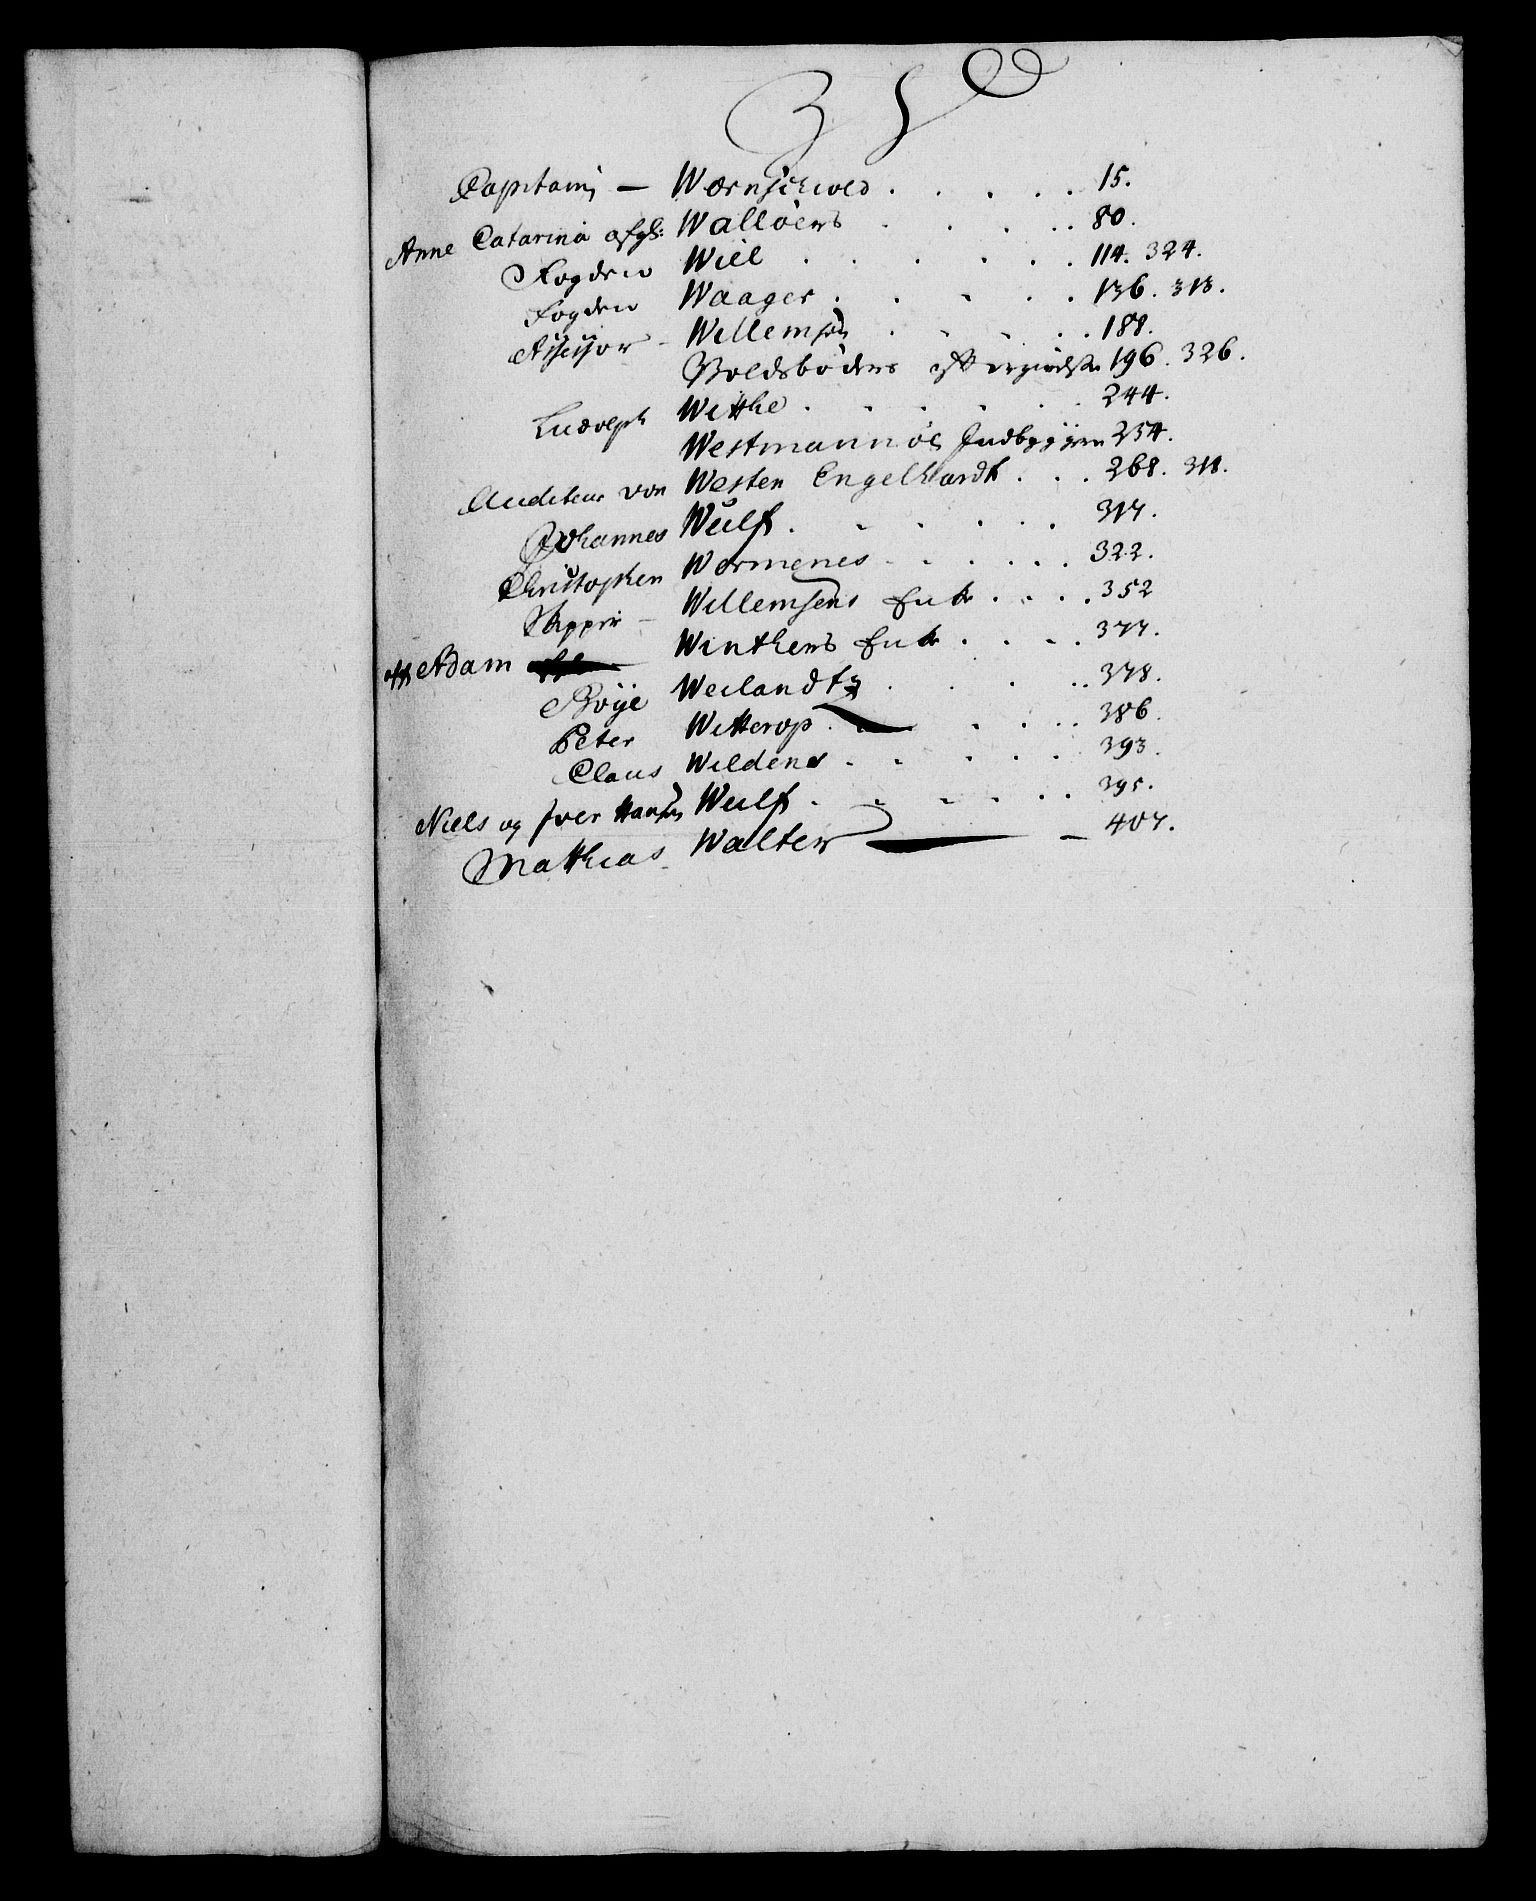 W
Capitain — Wærnschiold . . . . . 15.
Anne Catarina afgl: Walløers . . . . . 80.
Fogden Wiel . . . . . . 114. 324.
Fogden Waager . . . . . 136. 313.
Assessor - Willemsen . . . . . 188.
Voldsbøders efftergivelse 196. 326.
Ludolph Withe . . . . . . 244.
Westmannøe Indbyggere 254.
Auditeur von Westen Engelhardt . . . 268. 318.
Johannes Wulf . . . . . . 317.
Christopher Wormenes . . . . . . 322.
Skipper — Willemsens Enke . . . . 352
Adam Winthers Enke . . . . 377.
Boye Weilandt . . . . 378.
Peter Witterop . . . . . 386.
Claus Wildens . . . . . 393.
Niels og Iver Hansen Wulf . . . . . . 395.
Mathias Walter — 407.